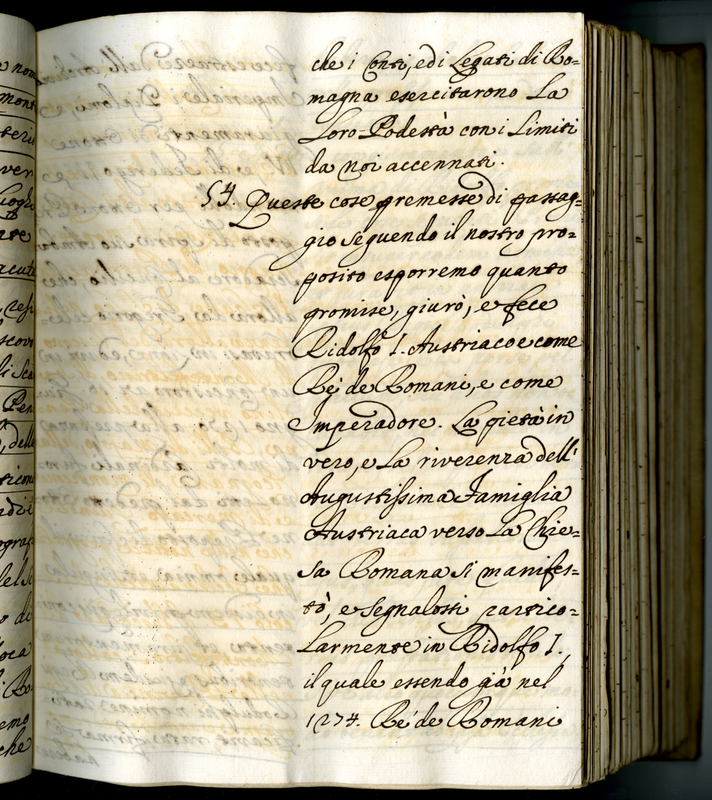 che i Conti, ed i Legati di Ro=
magna esercitarono La
Loro Podestà con i Limiti
da noi accennati.
54. Queste cose premesse di passag=
gio seguendo il nostro pro=
posito esporremo quanto
promise, giurò, e fece
Ridolfo I. Austriaco e come
Rè de Romani, e come
Imperadore. La pietà in
vero, e La riverenza dell'
Augustissima Famiglia
Austriaca verso La Chie=
sa Romana si manifes=
tò, e segnalossi partico=
Larmente in Ridolfo I.,
il quale essendo già nel
1274. Rè de Romani